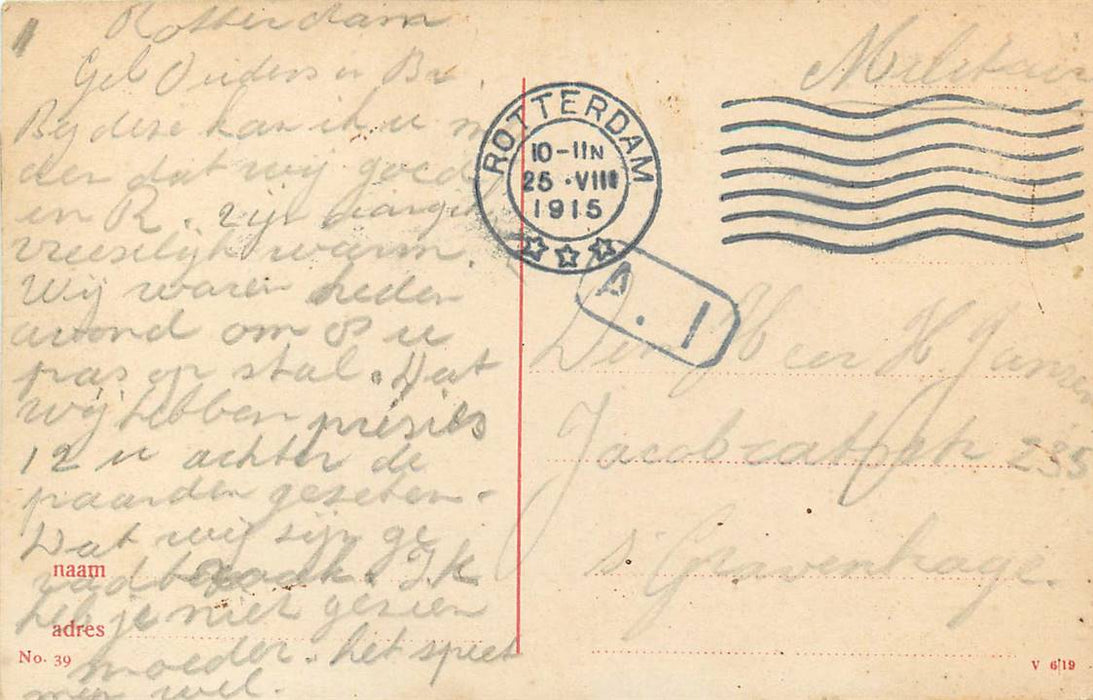 Rotterdam
Gel Ouders en Br.
Bij dese kan ik u m
den dat wij goed
in R. zijn
vreeselijk warm.
Wij waren heden
avond om 8 u
pas op stal. Dat
wij hebben presies
12 u achter de
paarden geseten.
Dat wij sijn ge
Ik
heb je niet gesien
moeder. het speet
mijn wel.
naam
adres
No. 39
ROTTERDAM
10-11N
25 · VIII
1915
A. 1
Militair
Den Heer H. Jansen
235
s' Gravenhage.
V 6|19